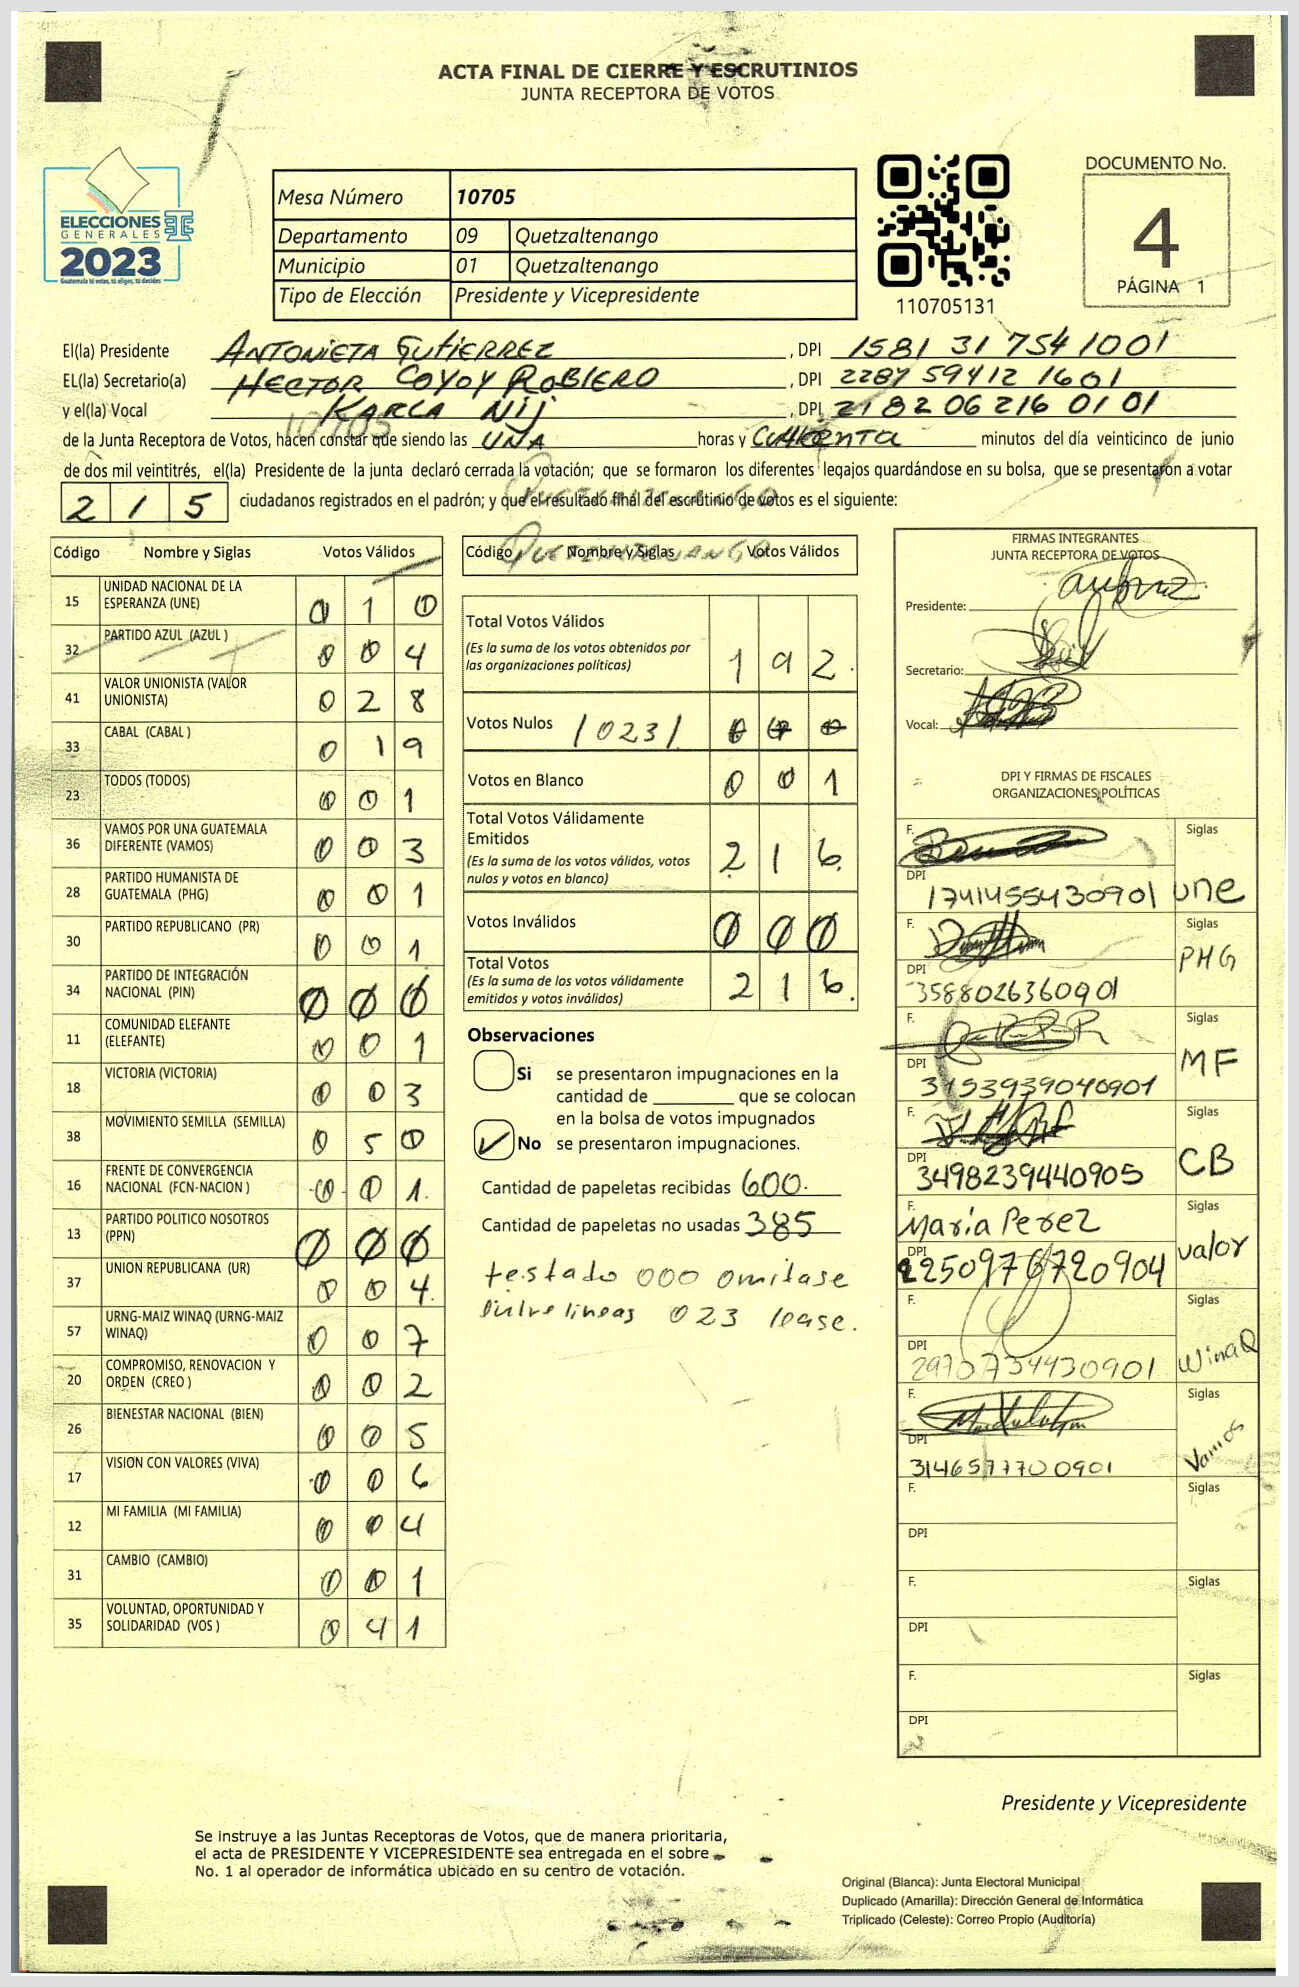 ACTA FINAL DE CIERRE Y ESCRUTINIOS
JUNTA RECEPTORA DE VOTOS
ELECCIONES
GENERALES
2023
Guatemala tú votas, tú eliges, tú decides
Mesa Número 10705
Departamento 09 Quetzaltenango
Municipio 01 Quetzaltenango
Tipo de Elección Presidente y Vicepresidente
110705131
DOCUMENTO No.
4
PÁGINA 1
El(la) Presidente ANTONIETA GUTIERREZ , DPI 1581 31 754 1001
EL(la) Secretario(a) HECTOR COYOY ROBLERO , DPI 2287 59412 1601
y el(la) Vocal KARLA Nij , DPI 2182 06216 0101
10705
de la Junta Receptora de Votos, hacen constar que siendo las UNA horas y CUARENTA minutos del día veinticinco de junio
de dos mil veintitrés, el(la) Presidente de la junta declaró cerrada la votación; que se formaron los diferentes legajos guardándose en su bolsa, que se presentaron a votar
215 ciudadanos registrados en el padrón; y que el resultado final del escrutinio de votos es el siguiente:
Código Nombre y Siglas Votos Válidos
15 UNIDAD NACIONAL DE LA ESPERANZA (UNE) 0 1 0
32 PARTIDO AZUL (AZUL ) 0 0 4
41 VALOR UNIONISTA (VALOR UNIONISTA) 0 2 8
33 CABAL (CABAL ) 0 1 9
23 TODOS (TODOS) 0 0 1
36 VAMOS POR UNA GUATEMALA DIFERENTE (VAMOS) 0 0 3
28 PARTIDO HUMANISTA DE GUATEMALA (PHG) 0 0 1
30 PARTIDO REPUBLICANO (PR) 0 0 1
34 PARTIDO DE INTEGRACIÓN NACIONAL (PIN) 0 0 0
11 COMUNIDAD ELEFANTE (ELEFANTE) 0 0 1
18 VICTORIA (VICTORIA) 0 0 3
38 MOVIMIENTO SEMILLA (SEMILLA) 0 5 0
16 FRENTE DE CONVERGENCIA NACIONAL (FCN-NACION ) 0 0 1
13 PARTIDO POLITICO NOSOTROS (PPN) 0 0 0
37 UNION REPUBLICANA (UR) 0 0 4
57 URNG-MAIZ WINAQ (URNG-MAIZ WINAQ) 0 0 7
20 COMPROMISO, RENOVACION Y ORDEN (CREO ) 0 0 2
26 BIENESTAR NACIONAL (BIEN) 0 0 5
17 VISION CON VALORES (VIVA) 0 0 6
12 MI FAMILIA (MI FAMILIA) 0 0 4
31 CAMBIO (CAMBIO) 0 0 1
35 VOLUNTAD, OPORTUNIDAD Y SOLIDARIDAD (VOS ) 0 4 1
Código Nombre y Siglas Votos Válidos
Total Votos Válidos
(Es la suma de los votos obtenidos por
las organizaciones políticas) 1 9 2.
Votos Nulos /023/ 0 0 0
Votos en Blanco 0 0 1
Total Votos Válidamente
Emitidos
(Es la suma de los votos válidos, votos
nulos y votos en blanco) 2 1 6.
Votos Inválidos 0 0 0
Total Votos
(Es la suma de los votos válidamente
emitidos y votos inválidos) 2 1 6.
Observaciones
Si se presentaron impugnaciones en la
cantidad de ________ que se colocan
en la bolsa de votos impugnados
No se presentaron impugnaciones.
Cantidad de papeletas recibidas 600.
Cantidad de papeletas no usadas 385
testado 000 omitase
entre lineas 023 lease.
FIRMAS INTEGRANTES
JUNTA RECEPTORA DE VOTOS
Presidente:
Secretario:
Vocal:
DPI Y FIRMAS DE FISCALES
ORGANIZACIONES POLÍTICAS
F. Siglas
DPI 1741455430901 une
F. Siglas
DPI 3588026360901 PHG
F. Siglas
DPI 3153939040901 MF
F. Siglas
DPI 3498239440905 CB
F. María Perez Siglas
DPI 2250976720904 valor
F. Siglas
DPI 2970734430901 WinaQ
F. Siglas
DPI 3146577700901 Vamos
F. Siglas
DPI
F. Siglas
DPI
F. Siglas
DPI
Presidente y Vicepresidente
Se instruye a las Juntas Receptoras de Votos, que de manera prioritaria,
el acta de PRESIDENTE Y VICEPRESIDENTE sea entregada en el sobre
No. 1 al operador de informática ubicado en su centro de votación.
Original (Blanca): Junta Electoral Municipal
Duplicado (Amarilla): Dirección General de Informática
Triplicado (Celeste): Correo Propio (Auditoría)